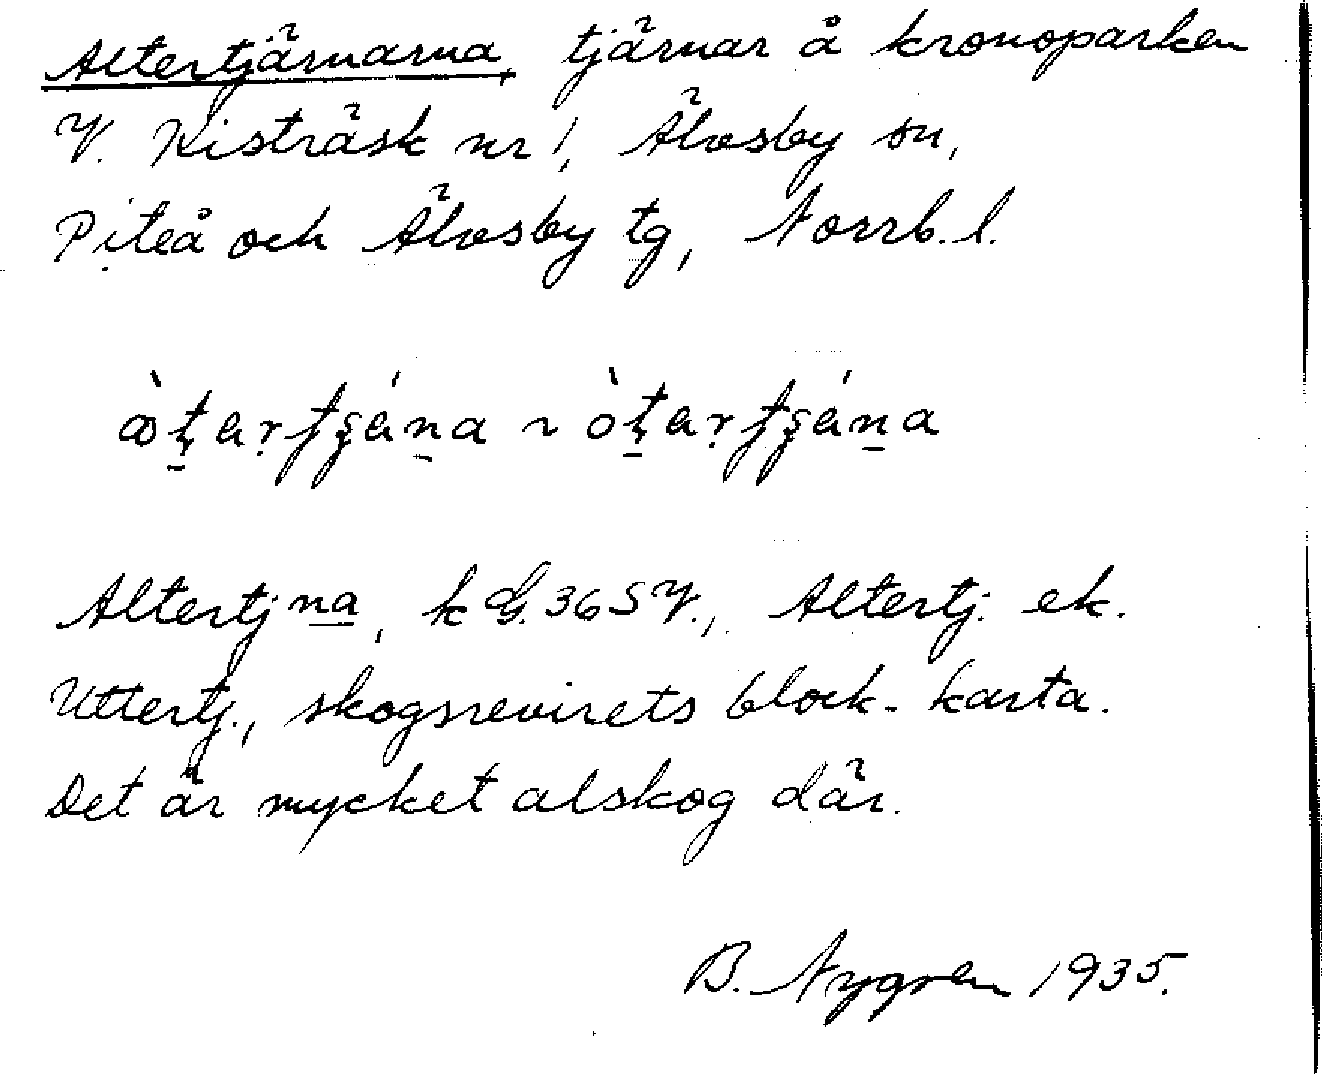 Altertjärnarna, tjärnar å kronoparken
V. Kisträsk nr 1, Älvsby sn,
Piteå och Älvsby tg, Norrb. l.
Altertjna, k G. 36 SV., Altertj. ek.
Uttertj., skogsrevirets block-karta.
Det är mycket alskog där.
B. Nygren 1935.